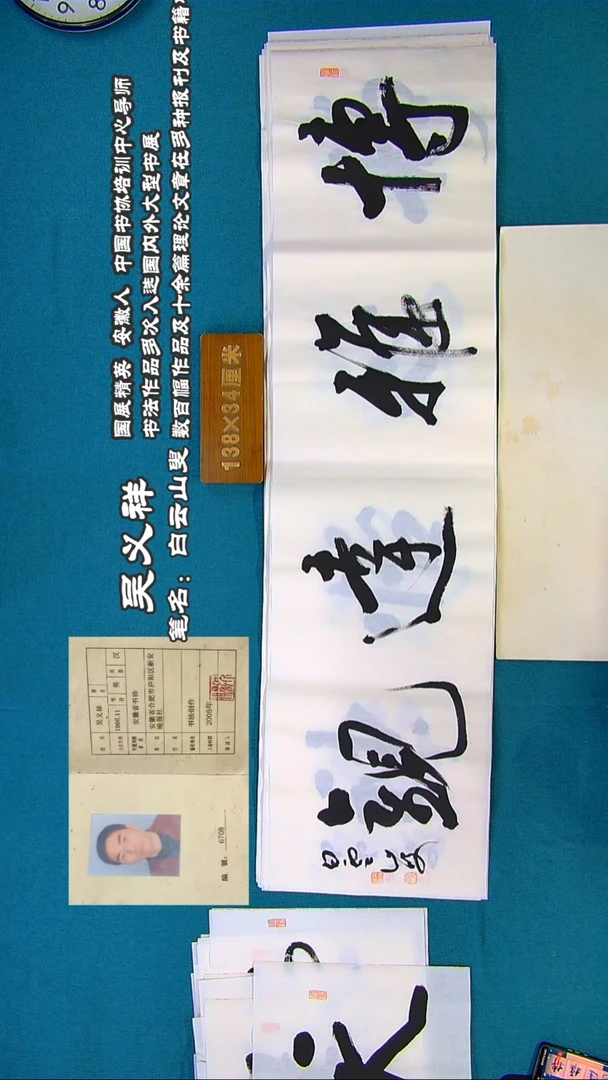 国展精英 安徽人 中国书协培训中心导师
书法作品多次入选国内外大型书展
吴义祥
笔名：白云山叟 数百幅作品及十余篇理论文章在多种报刊及书籍
138×34厘米
博雅達觀
白云山叟
男
汉
1966.11
安徽省书协
安徽省合肥市庐阳区新安
晚报社
2005年
编号：6708
9
8